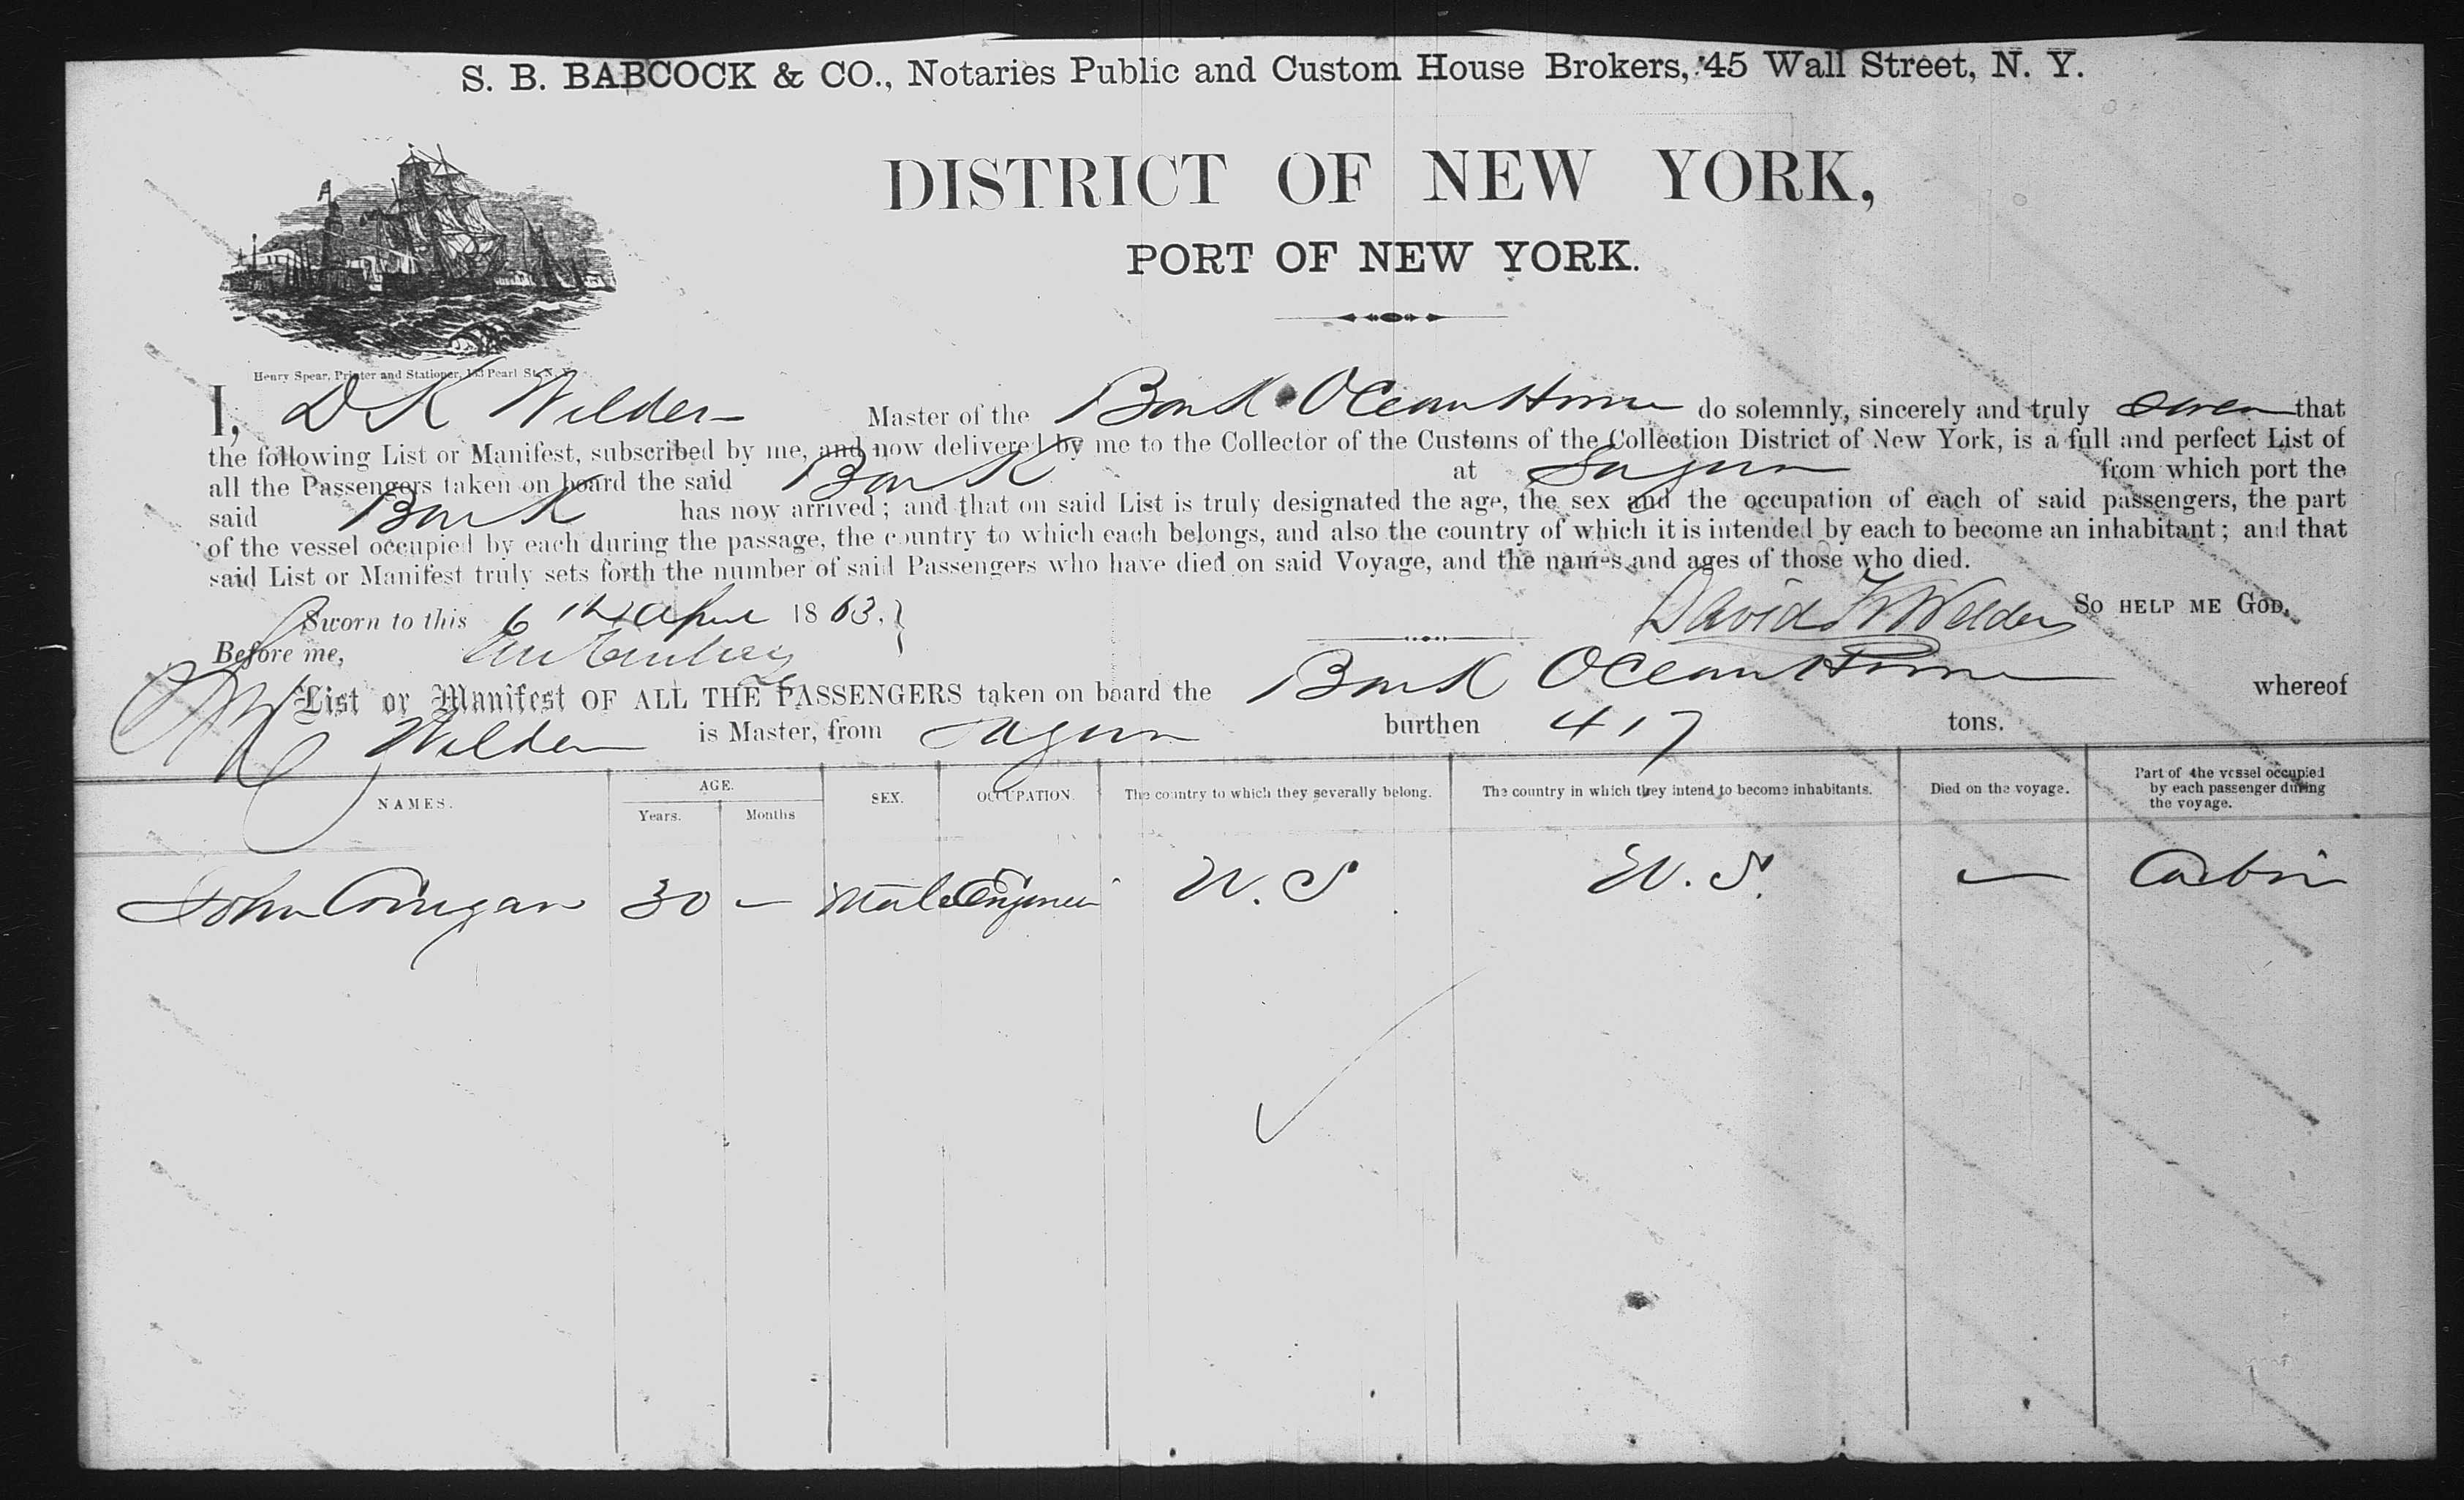 S. B. BABCOCK & CO., Notaries Public and Custom House Brokers, 45 Wall Street, N. Y.
DISTRICT OF NEW YORK,
PORT OF NEW YORK.
Henry Spear, Printer and Stationer, 133 Pearl St. N. Y.
I, D K Wilder Master of the Bark Ocean Home do solemnly, sincerely and truly swear that
the following List or Manifest, subscribed by me, and now delivered by me to the Collector of the Customs of the Collection District of New York, is a full and perfect List of
all the Passengers taken on board the said Bark at Sagua from which port the
said Bark has now arrived; and that on said List is truly designated the age, the sex and the occupation of each of said passengers, the part
of the vessel occupied by each during the passage, the country to which each belongs, and also the country of which it is intended by each to become an inhabitant; and that
said List or Manifest truly sets forth the number of said Passengers who have died on said Voyage, and the names and ages of those who died.
Sworn to this 6th April 1863. David K Wilder SO HELP ME GOD.
Before me,
List or Manifest OF ALL THE PASSENGERS taken on board the Bark Ocean Home whereof
Wilder is Master, from Sagua burthen 417 tons.
NAMES. AGE. Years. Months SEX. OCCUPATION. The country to which they severally belong. The country in which they intend to become inhabitants. Died on the voyage. Part of the vessel occupied by each passenger during the voyage.
John Corrigan 30 — Male Engineer U. S. U. S. — Cabin